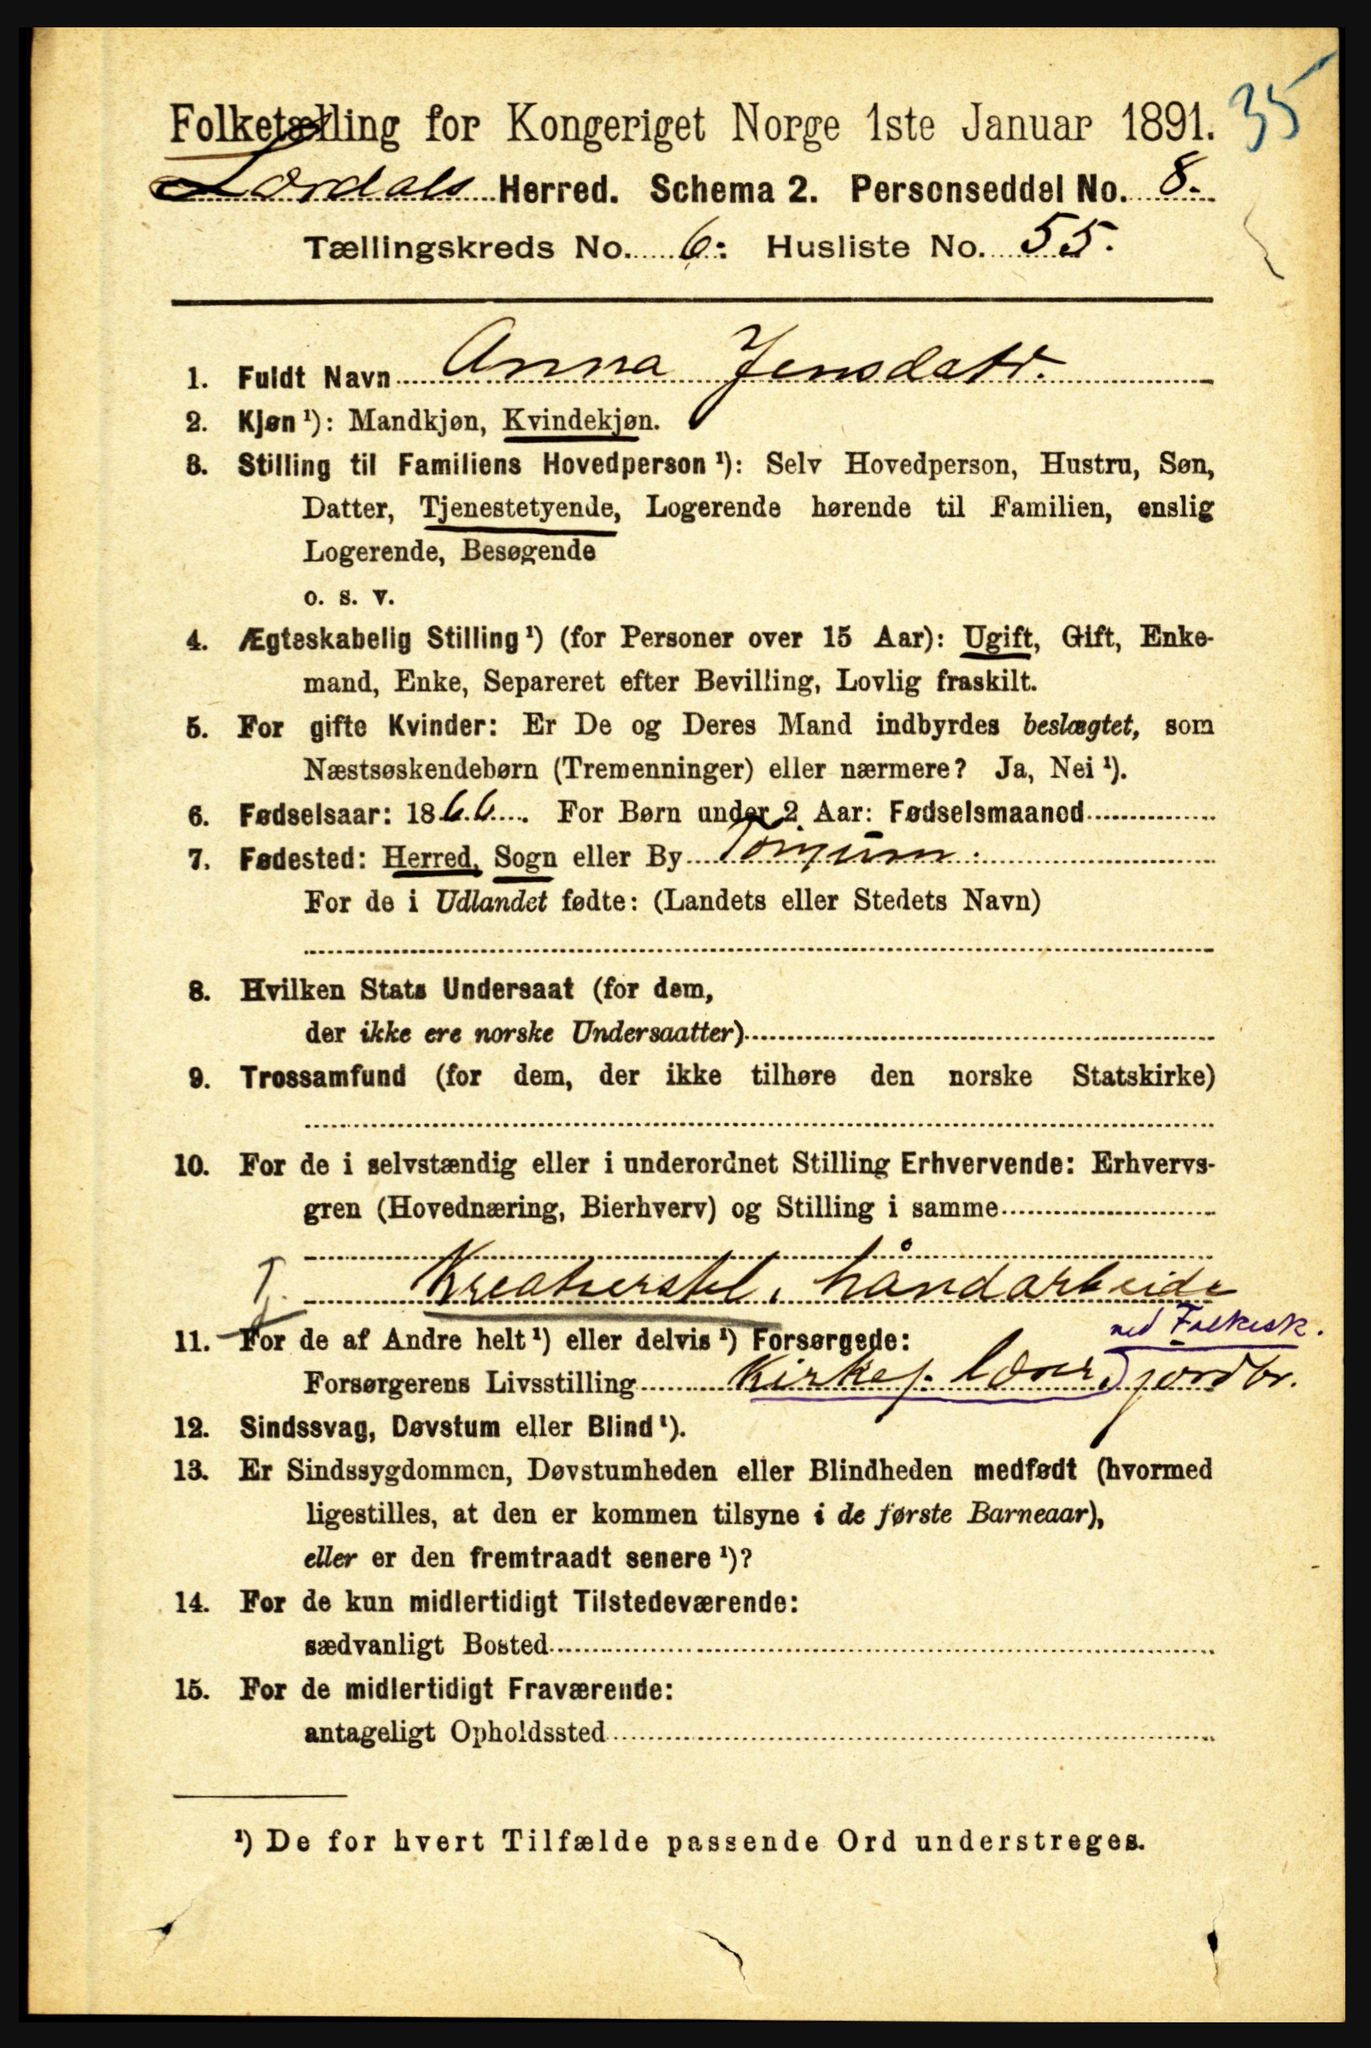 35
Folketælling for Kongeriget Norge 1ste Januar 1891.
Lærdals Herred. Schema 2. Personseddel No. 8.
Tællingskreds No. 6: Husliste No. 55.
1. Fuldt Navn Anna Jensdatr.
2. Kjøn¹): Mandkjøn, Kvindekjøn.
3. Stilling til Familiens Hovedperson¹): Selv Hovedperson, Hustru, Søn,
Datter, Tjenestetyende, Logerende hørende til Familien, enslig
Logerende, Besøgende
o. s. v.
4. Ægteskabelig Stilling¹) (for Personer over 15 Aar): Ugift, Gift, Enke-
mand, Enke, Separeret efter Bevilling, Lovlig fraskilt.
5. For gifte Kvinder: Er De og Deres Mand indbyrdes beslægtet, som
Næstsøskendebørn (Tremenninger) eller nærmere? Ja, Nei¹).
6. Fødselsaar: 1866. For Børn under 2 Aar: Fødselsmaaned
7. Fødested: Herred, Sogn eller By Tønjum.
For de i Udlandet fødte: (Landets eller Stedets Navn)
8. Hvilken Stats Undersaat (for dem,
der ikke ere norske Undersaatter)
9. Trossamfund (for dem, der ikke tilhøre den norske Statskirke)
10. For de i selvstændig eller i underordnet Stilling Erhvervende: Erhvervs-
gren (Hovednæring, Bierhverv) og Stilling i samme
Kreaturstel, håndarbeide
11. For de af Andre helt¹) eller delvis¹) Forsørgede:
ved Folkesk.
Forsørgerens Livsstilling Kirkes. Lærer, jordbr.
12. Sindssvag, Døvstum eller Blind¹).
13. Er Sindssygdommen, Døvstumheden eller Blindheden medfødt (hvormed
ligestilles, at den er kommen tilsyne i de første Barneaar),
eller er den fremtraadt senere¹)?
14. For de kun midlertidigt Tilstedeværende:
sædvanligt Bosted
15. For de midlertidigt Fraværende:
antageligt Opholdssted
¹) De for hvert Tilfælde passende Ord understreges.